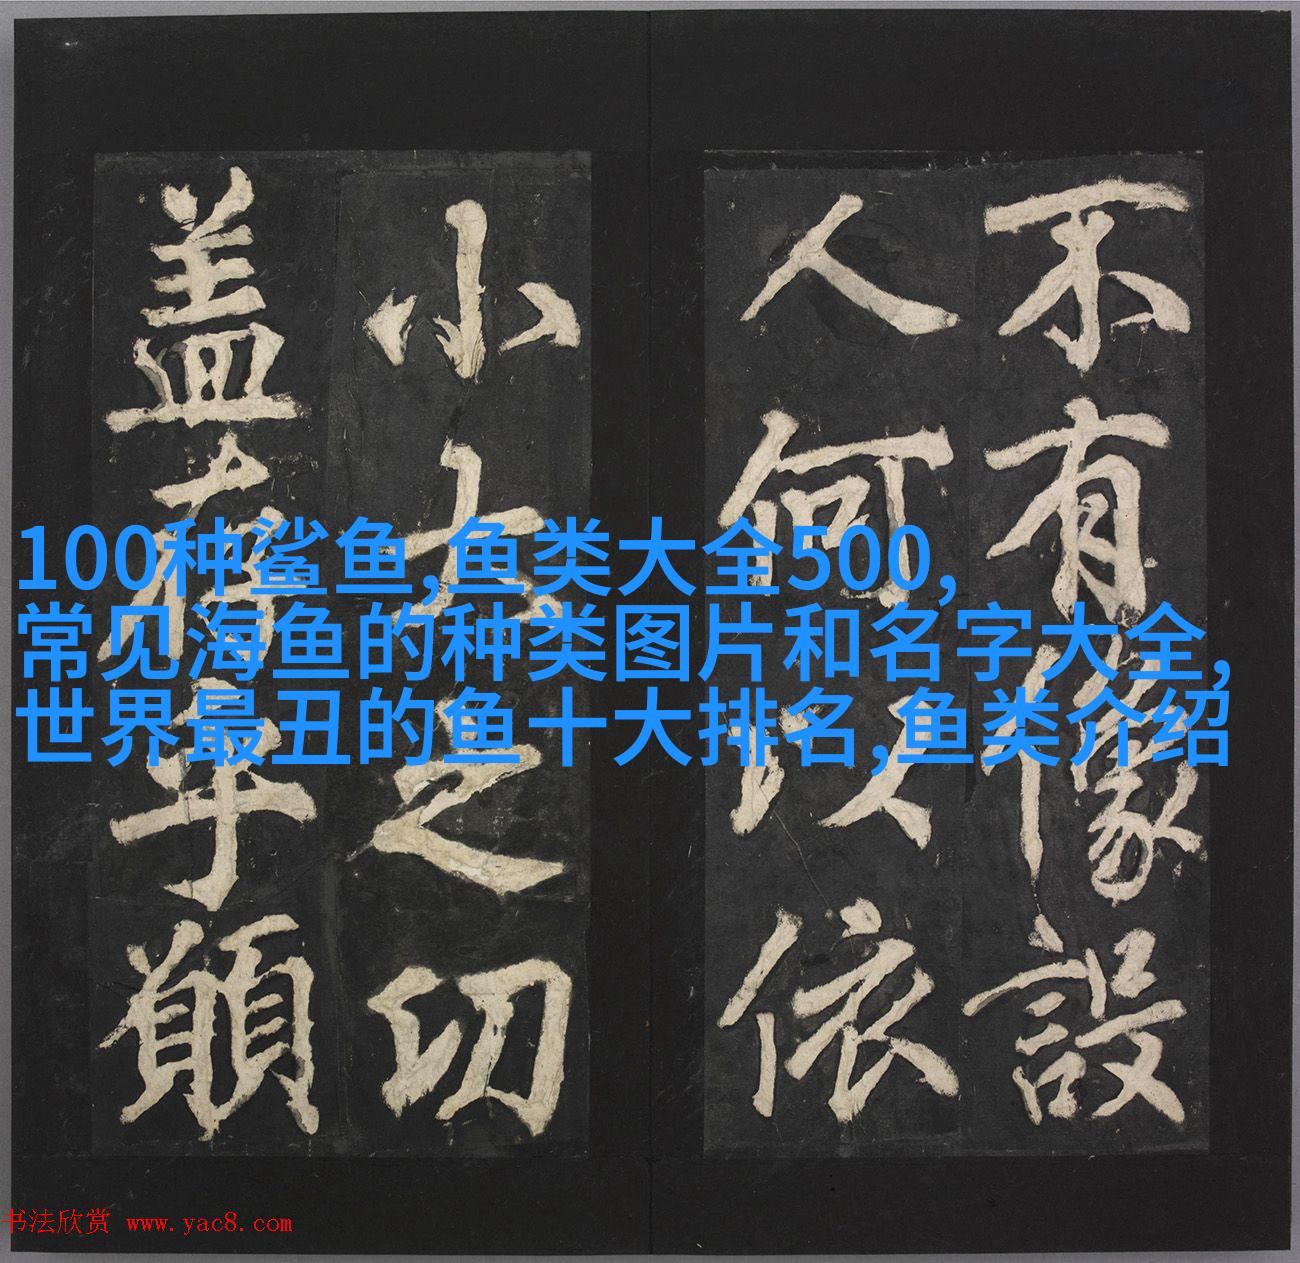 不有像設
人何以依
小大之切
盖存乎願
100种鲨鱼,鱼类大全500,
常见海鱼的种类图片和名字大全,
世界最丑的鱼十大排名,鱼类介绍
书法欣赏 www.yac8.com